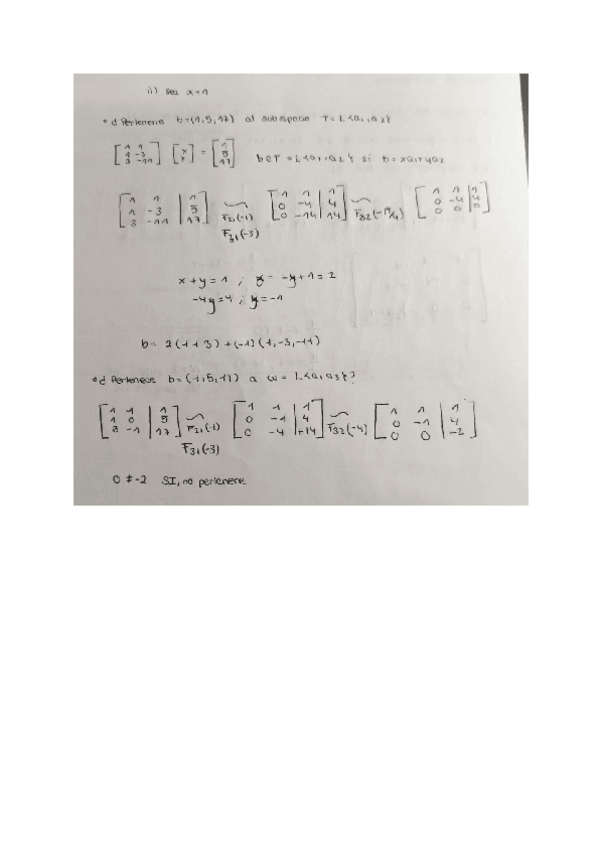 ii) sea α=1
• ¿ Pertenece b=(1,5,17) al subespacio T=L{a₁,a₂}
[1 1; 1 -3; 3 -11] [x; y] = [1; 5; 17] b∈T=L{a₁,a₂} si b=xa₁+ya₂
[1 1 | 1; 1 -3 | 5; 3 -11 | 17] ~ F₂₁(-1) F₃₁(-3) [1 1 | 1; 0 -4 | 4; 0 -14 | 14] ~ [1 1 | 1; 0 -4 | 4; 0 0 | 0]
x+y=1 ; -y+1=2
-4y=4 ; y=-1
b= 2(1 1 3)+(-1)(1,-3,-11)
• ¿ Pertenece b=(1,5,17) a ω= L{a₁,a₃}?
[1 1 | 1; 1 0 | 5; 3 -1 | 17] ~ F₂₁(-1) F₃₁(-3) [1 1 | 1; 0 -1 | 4; 0 -4 | +14] ~ F₃₂(-4) [1 1 | 1; 0 -1 | 4; 0 0 | -2]
0≠-2 SI, no pertenece